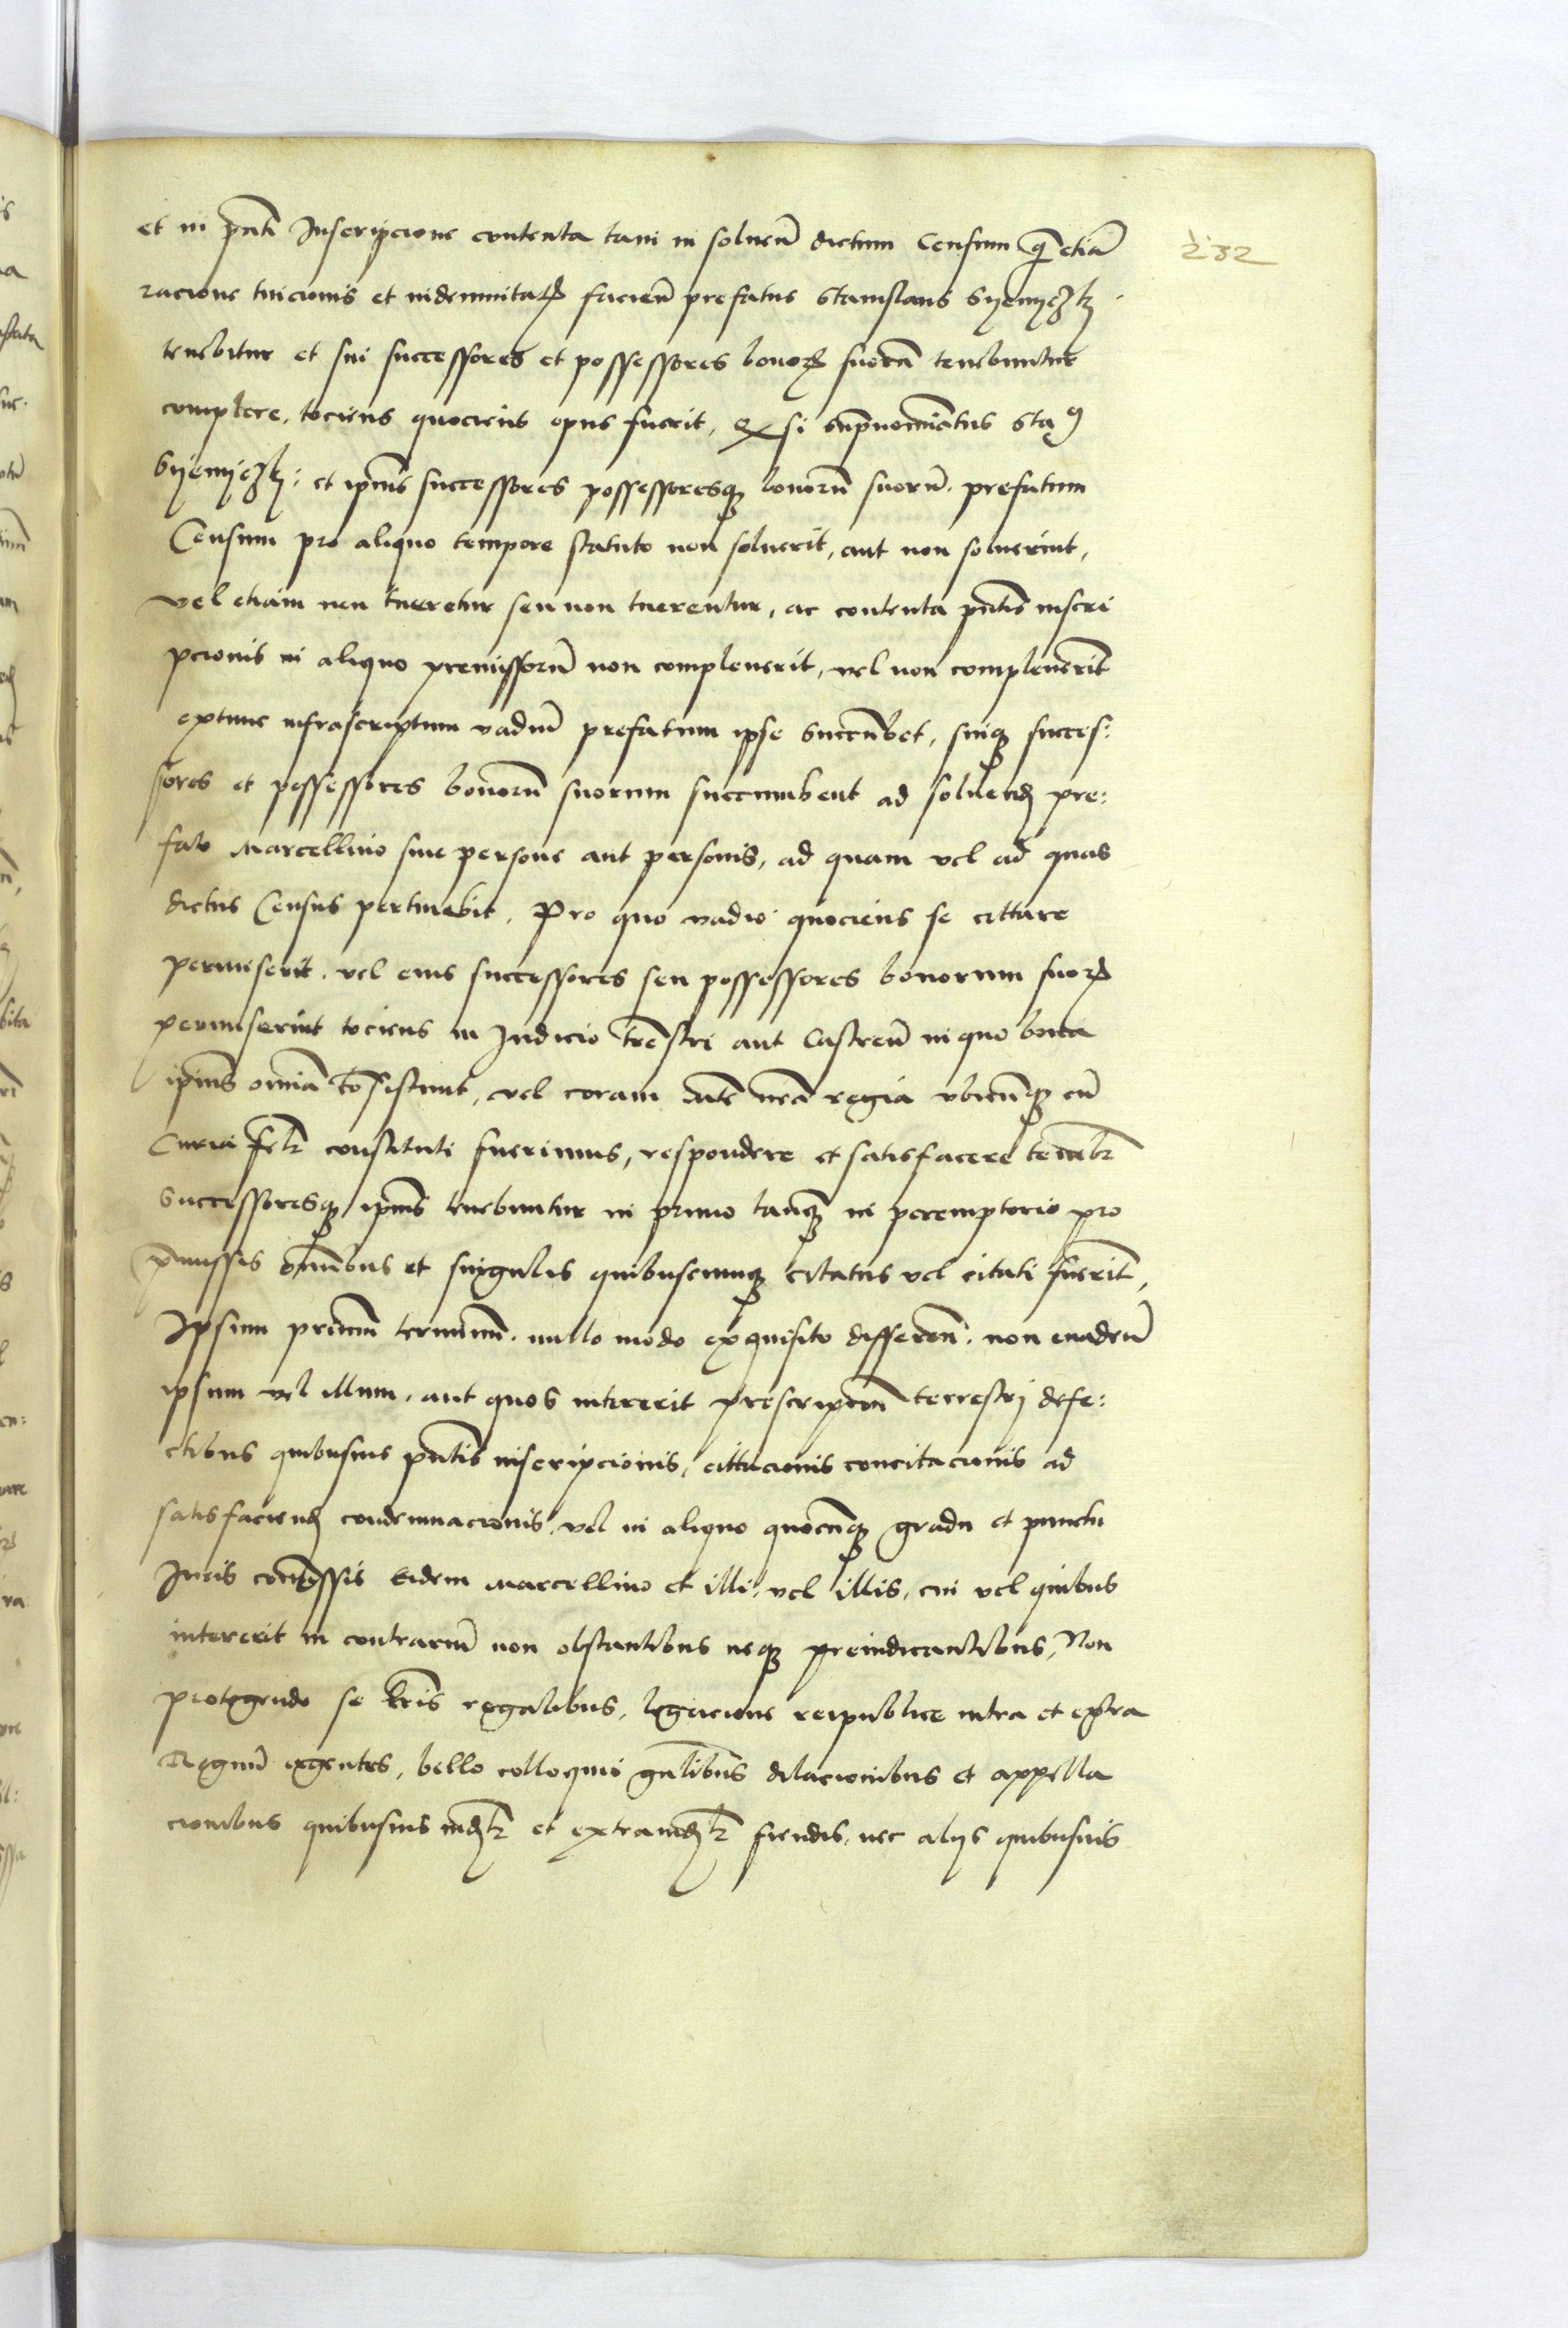 et in pñti Inscripcione contenta tam in solueñ dictum Censum q̃ etiã
racione tuicionis et indemnitaꝝ facieñ prefatus Stanislaus Syenyczkj
tenebitur et sui successores et possessores bonoꝝ suorũ tenebuntur
complere, tociens quociens opus fuerit, Q si sup̃nomiãtus Sta9
Syenyczkj: et ip̃ius successores possessoresqꝫ bonorũ suorũ prefatum
Censum pro aliquo tempore statuto non soluerit, aut non soluerint,
vel etiam non tueretur seu non tuerentur, ac contenta pñtis inscri
pcionis in aliquo premissorũ non compleuerit, vel non compleuerint
extunc infrascriptum vadiũ prefatum ipse succũbet, suiqꝫ succes:
sores et possessores bonorũ suorum succumbent ad soluend pre:
fato Marcellino siue persone aut personis, ad quam vel ad quas
dictus Census pertinebit. Pro quo vadio quociens se cittare
permiserit. vel eius successores seu possessores bonorum suoꝝ
permiserint tociens in Judicio trẽstri aut Castreñ in quo bona
ip̃ius omnia cõsistunt, vel coram Mte nrã regia vbicũqꝫ cũ
Curia felr̃ constituti fuerimus, respondere et satisfacere tenebr̃
Successoresqꝫ ip̃ius tenebuntur in primo tanqꝫ in peremptorio pro
p̃missis om̃ibus et singulis quibuscumqꝫ citatus vel citati fuerint,
Ipsum primum terminum. nullo modo exquisito differeñ. non euadeñ
ipsum vel illum. aut quos intererit prescripcoñ terrestrj defe:
ctibus quibusuis pñtis inscripcionis, cittacionis concitacionis ad
satisfaciend condemnacionis. vel in aliquo quocũqꝫ gradu et punctu
Juris commissis Eidem Marcellino et illi, vel illis, cui vel quibus
intererit in contrariũ non obstantibus neqꝫ preiudicantibus, Non
protegendo se lris̃ regalibus, legacione reipublice intra et extra
Regnũ egentes, bello colloquio gnãlibus dilacionibus et appella
cionibus quibusuis iudlr̃ et extraiudlr̃ fiendis, nec alijs quibusuis
232